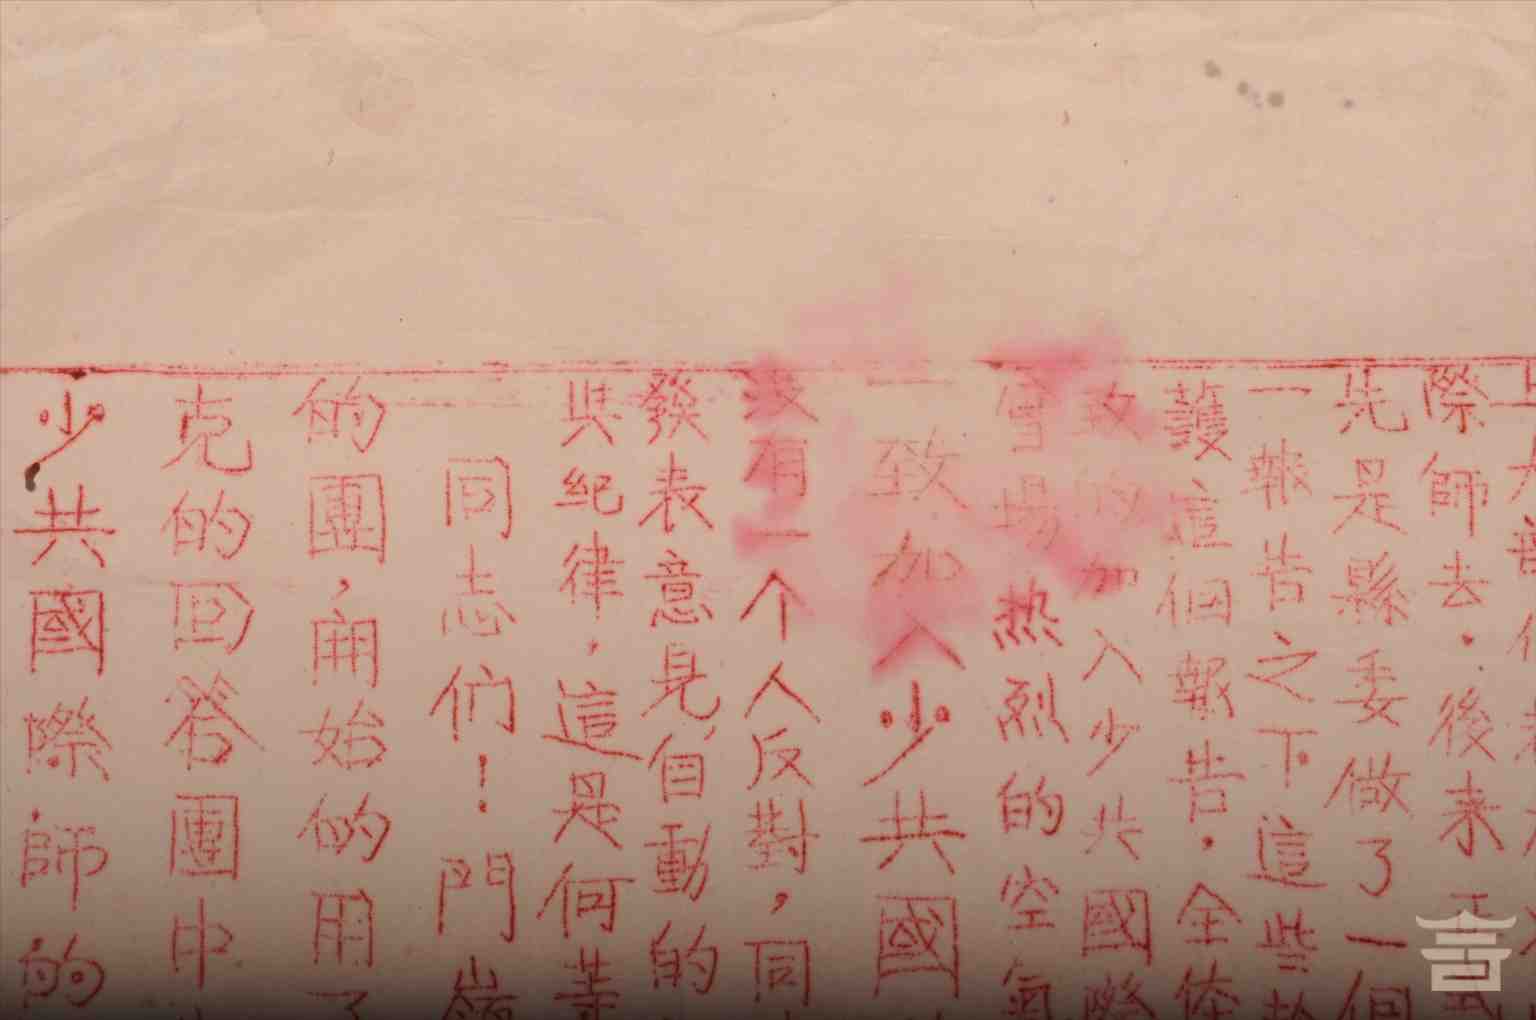 際師去．後来
先是縣委做了一個
一報告之下這些
護這個報告．全体
致的加入少共國際
雪場热烈的空氣
一致加入少共國
没有一个人反對，同
發表意見自動的
與紀律．這是何等
同志们！門嶺
的團，開始的用了
克的回答團中
少共國際師的